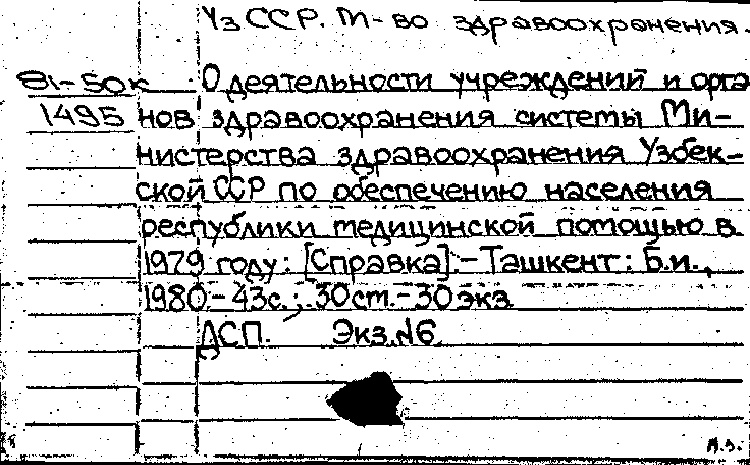 УзССР. М-во здравоохранения.
81-50к О деятельности учреждений и орга
1495 нов здравоохранения системы Ми-
нистерства здравоохранения Узбек-
ской ССР по обеспечению населения
республики медицинской помощью в
1979 году: [Справка].-Ташкент: Б.и.,
1980.-43с.; 30см.-30экз.
ДСП. Экз.№6.